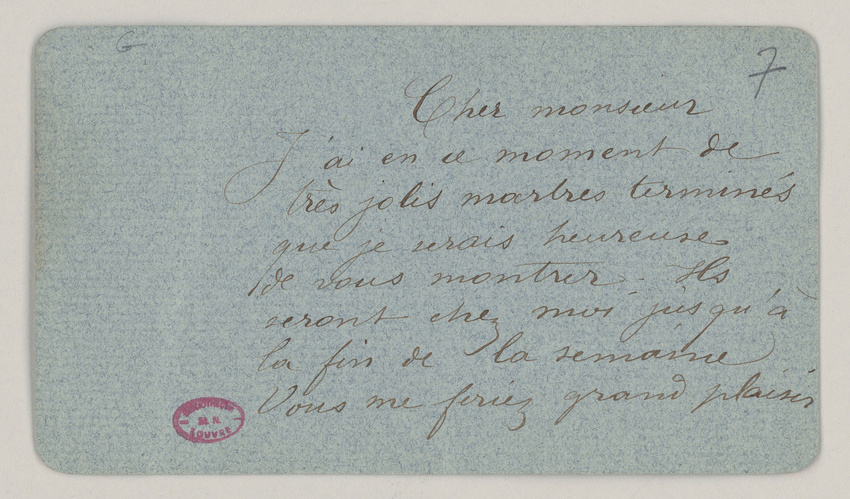 G
7
Cher monsieur
J'ai en ce moment de
très jolis marbres terminés
que je serais heureuse
de vous montrer. Ils
seront chez moi jusqu'à
la fin de la semaine
Vous me feriez grand plaisir
BIBLIOTHEQUE
M. N.
LOUVRE